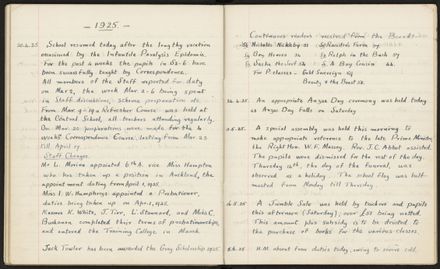 — 1925. —
20.4.25 School resumed today after the lengthy vacation
occasioned by the Infantile Paralysis Epidemic.
For the past 4 weeks the pupils in S2-6 have
been successfully taught by Correspondence.
All members of the Staff reported for duty
on Mar 2, the week Mar. 2-6 being spent
in Staff discussions, scheme preparation etc.
From Mar. 9-19 a Refresher Course was held at
the Central School, all teachers attending regularly.
On Mar. 20 preparations were made for the 4
weeks' Correspondence Course, lasting from Mar. 23
till April 17.
Staff Changes.
Mr L. Morine appointed 6th A. vice Miss Hampton
who has taken up a position in Auckland, the
appointment dating from April 1, 1925.
Miss I. W. Humphreys appointed a Probationer,
duties being taken up on Apr. 1, 1925.
Messrs K. White, J. Tier, L. Steward, and Miss C.
Buchanan, completed their terms of probationership,
and entered the Training College in March.
Jack Towler has been awarded the Gray Scholarship 1925.
Continuous readers received from the Board:-
S6 Nicholas Nickleby 31 S5 Rowland Farm 47
S4 Boy Heroes 36 S3 Ralph in the Bush 57
S2 52
For P classes:- Gold Sovereign 54
Beauty & the Beast 52.
24.4.25 An appropriate Anzac Day ceremony was held today
as Anzac Day falls on Saturday
11.5.25 A special assembly was held this morning to
make appropriate reference to the late Prime Minister,
the Right Hon. W. F. Massey. Rev. J. C. Abbot assisted.
The pupils were dismissed for the rest of the day.
Thursday 14th, the day of the funeral, was
observed as a holiday. The school flag was half-
masted from Monday till Thursday.
A Jumble Sale was held by teachers and pupils
this afternoon (Saturday), over being netted.
This amount plus subsidy is to be devoted to
the purchase of books for the various classes.
H.M. absent from duties today, owing to severe cold.